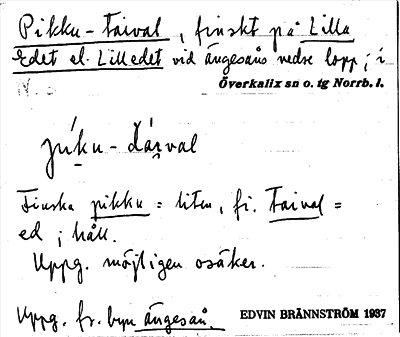 Pikku-Taival, finskt på Lilla
Edet el. Lilledet vid Ängesåns nedre lopp; i
N. Ö
Överkalix sn o. tg Norrb. l.
píku-dárval
Finska pikku = liten, fi. Taival =
ed; håll.
Uppg. möjligen osäker.
Uppg. fr. byn Ängeså.
EDVIN BRÄNNSTRÖM 1937